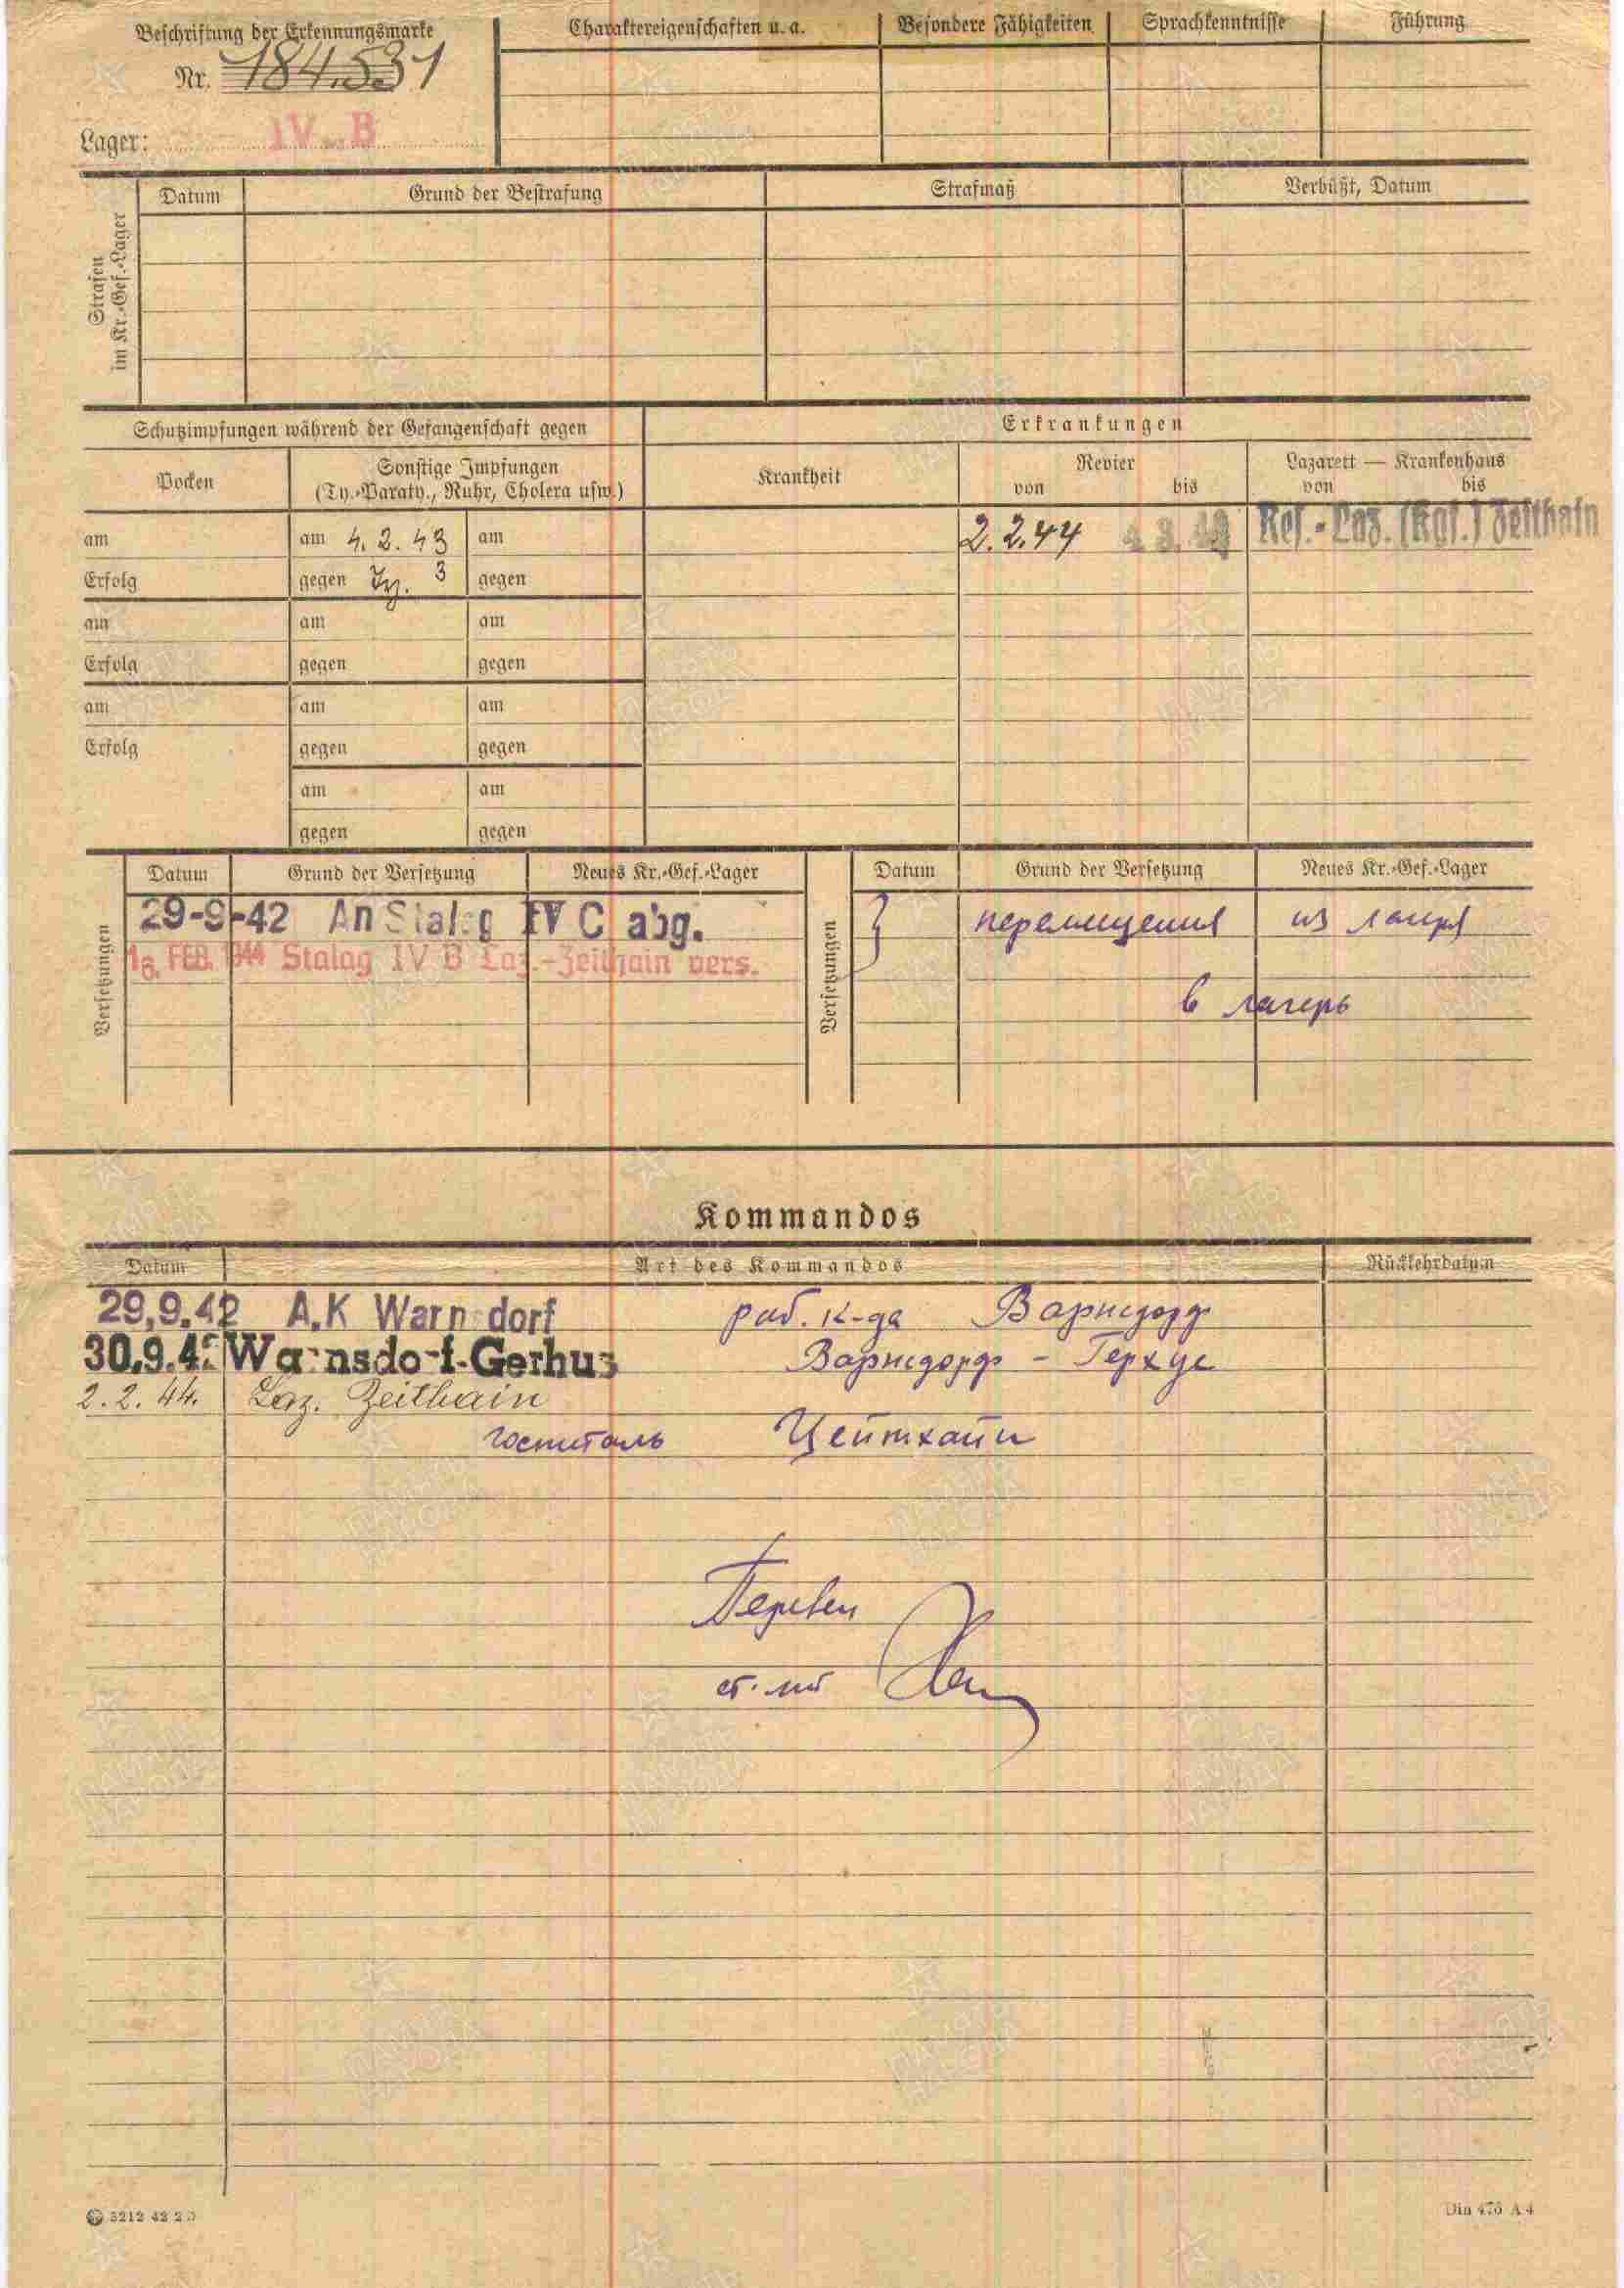 Beschriftung der Erkennungsmarke
Nr. 184.531
Lager: IV B
Charaktereigenschaften u. a. Besondere Fähigkeiten Sprachkenntnisse Führung
Strafen im Kr.-Gef.-Lager
Datum Grund der Bestrafung Strafmaß Verbüßt, Datum
Schutzimpfungen während der Gefangenschaft gegen
Erkrankungen
Pocken
Sonstige Impfungen
(Ty.-Paraty., Ruhr, Cholera usw.)
Krankheit
Revier
von bis
Lazarett — Krankenhaus
von bis
am am 4.2.43 am 2.2.44 Res.-Laz. (Kgf.) Zeithain
Erfolg gegen Ty. 3 gegen
am am am
Erfolg gegen gegen
am am am
Erfolg gegen gegen
am am
gegen gegen
Versetzungen
Datum Grund der Versetzung Neues Kr.-Gef.-Lager
29-9-42 An Stalag IV C abg.
FEB. 1944 Stalag IV B Laz.-Zeithain vers.
Versetzungen
Datum Grund der Versetzung Neues Kr.-Gef.-Lager
перемещения из лагеря
в лагерь
Kommandos
Datum Art des Kommandos Rückkehrdatum
29.9.42 A.K Warnsdorf раб. к-да Варнсдорф
30.9.42 Warnsdorf-Gerhus Варнсдорф - Герхус
2.2.44. Laz. Zeithain
госпиталь Цейтхайн
Перевел
ст. л-т
3212 42 2 D
Din 476 A 4